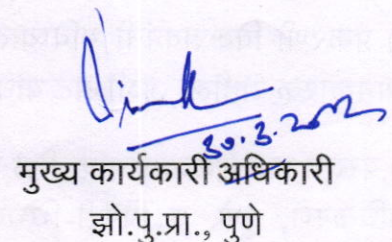 30.3.2012
मुख्य कार्यकारी अधिकारी
झो.पु.प्रा., पुणे